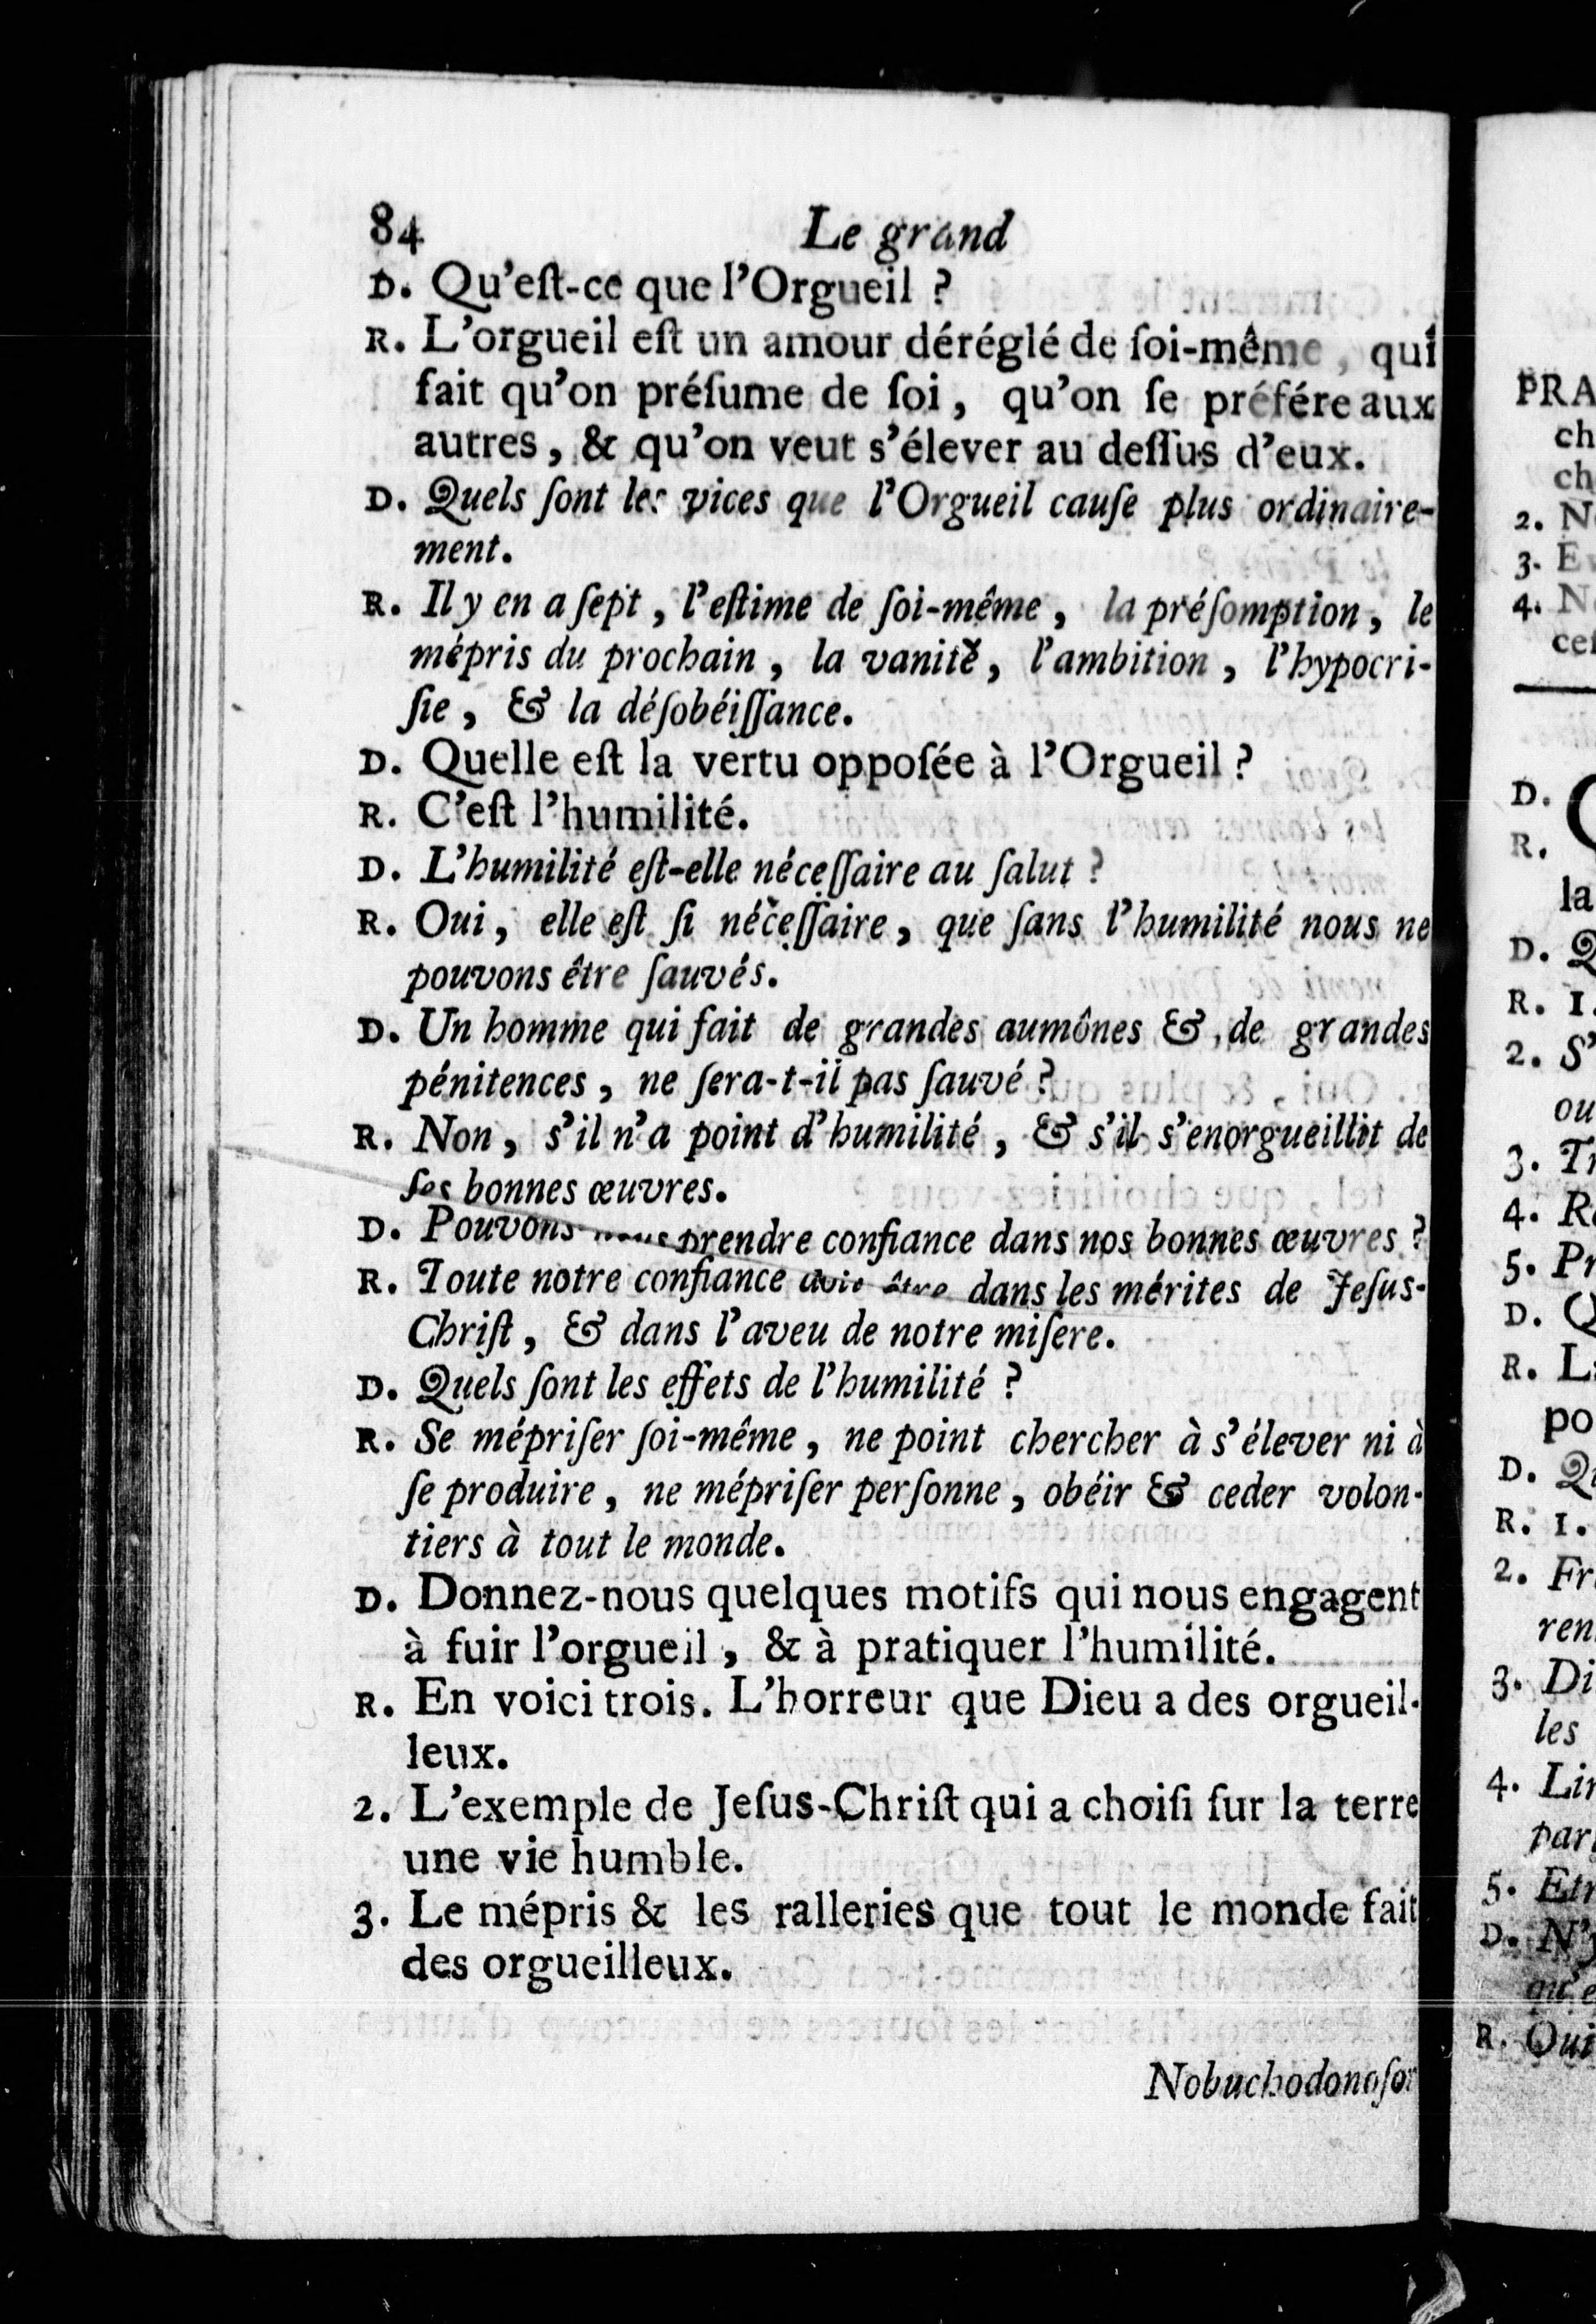 84 Le grand
D. Qu'eſt-ce que l'Orgueil ?
R. L'orgueil eſt un amour déréglé de ſoi-même, qui
fait qu'on préſume de ſoi, qu'on ſe préfére aux
autres, & qu'on veut s'élever au deſſus d'eux.
D. Quels ſont les vices que l'Orgueil cauſe plus ordinaire-
ment.
R. Il y en a ſept, l'eſtime de ſoi-même, la préſomption, le
mépris du prochain, la vanité, l'ambition, l'hypocri-
ſie, & la déſobéiſſance.
D. Quelle eſt la vertu oppoſée à l'Orgueil ?
R. C'eſt l'humilité.
D. L'humilité eſt-elle néceſſaire au ſalut ?
R. Oui, elle eſt ſi néceſſaire, que ſans l'humilité nous ne
pouvons être ſauvés.
D. Un homme qui fait de grandes aumônes & de grandes
pénitences, ne ſera-t-il pas ſauvé ?
R. Non, s'il n'a point d'humilité, & s'il s'enorgueillit de
ſes bonnes œuvres.
D. Pouvons-nous prendre confiance dans nos bonnes œuvres ?
R. Toute notre confiance doit être dans les mérites de Jeſus-
Chriſt, & dans l'aveu de notre miſere.
D. Quels ſont les effets de l'humilité ?
R. Se mépriſer ſoi-même, ne point chercher à s'élever ni à
ſe produire, ne mépriſer perſonne, obéir & ceder volon-
tiers à tout le monde.
D. Donnez-nous quelques motifs qui nous engagent
à fuir l'orgueil, & à pratiquer l'humilité.
R. En voici trois. L'horreur que Dieu a des orgueil-
leux.
2. L'exemple de Jeſus-Chriſt qui a choiſi ſur la terre
une vie humble.
3. Le mépris & les ralleries que tout le monde fait
des orgueilleux.
Nobuchodonoſor
PRA
ch
ch
2. N
3. E
4. N
ceſ
D.
R.
la
D. Q
R. 1.
2. S'
ou
3. Tr
4. R
5. Pr
D. Q
R. L
po
D. Qu
R. 1.
2. Fr
ren
3. Di
les
4. Lir
par
5. Etr
D. N'y
qu'e
R. Oui